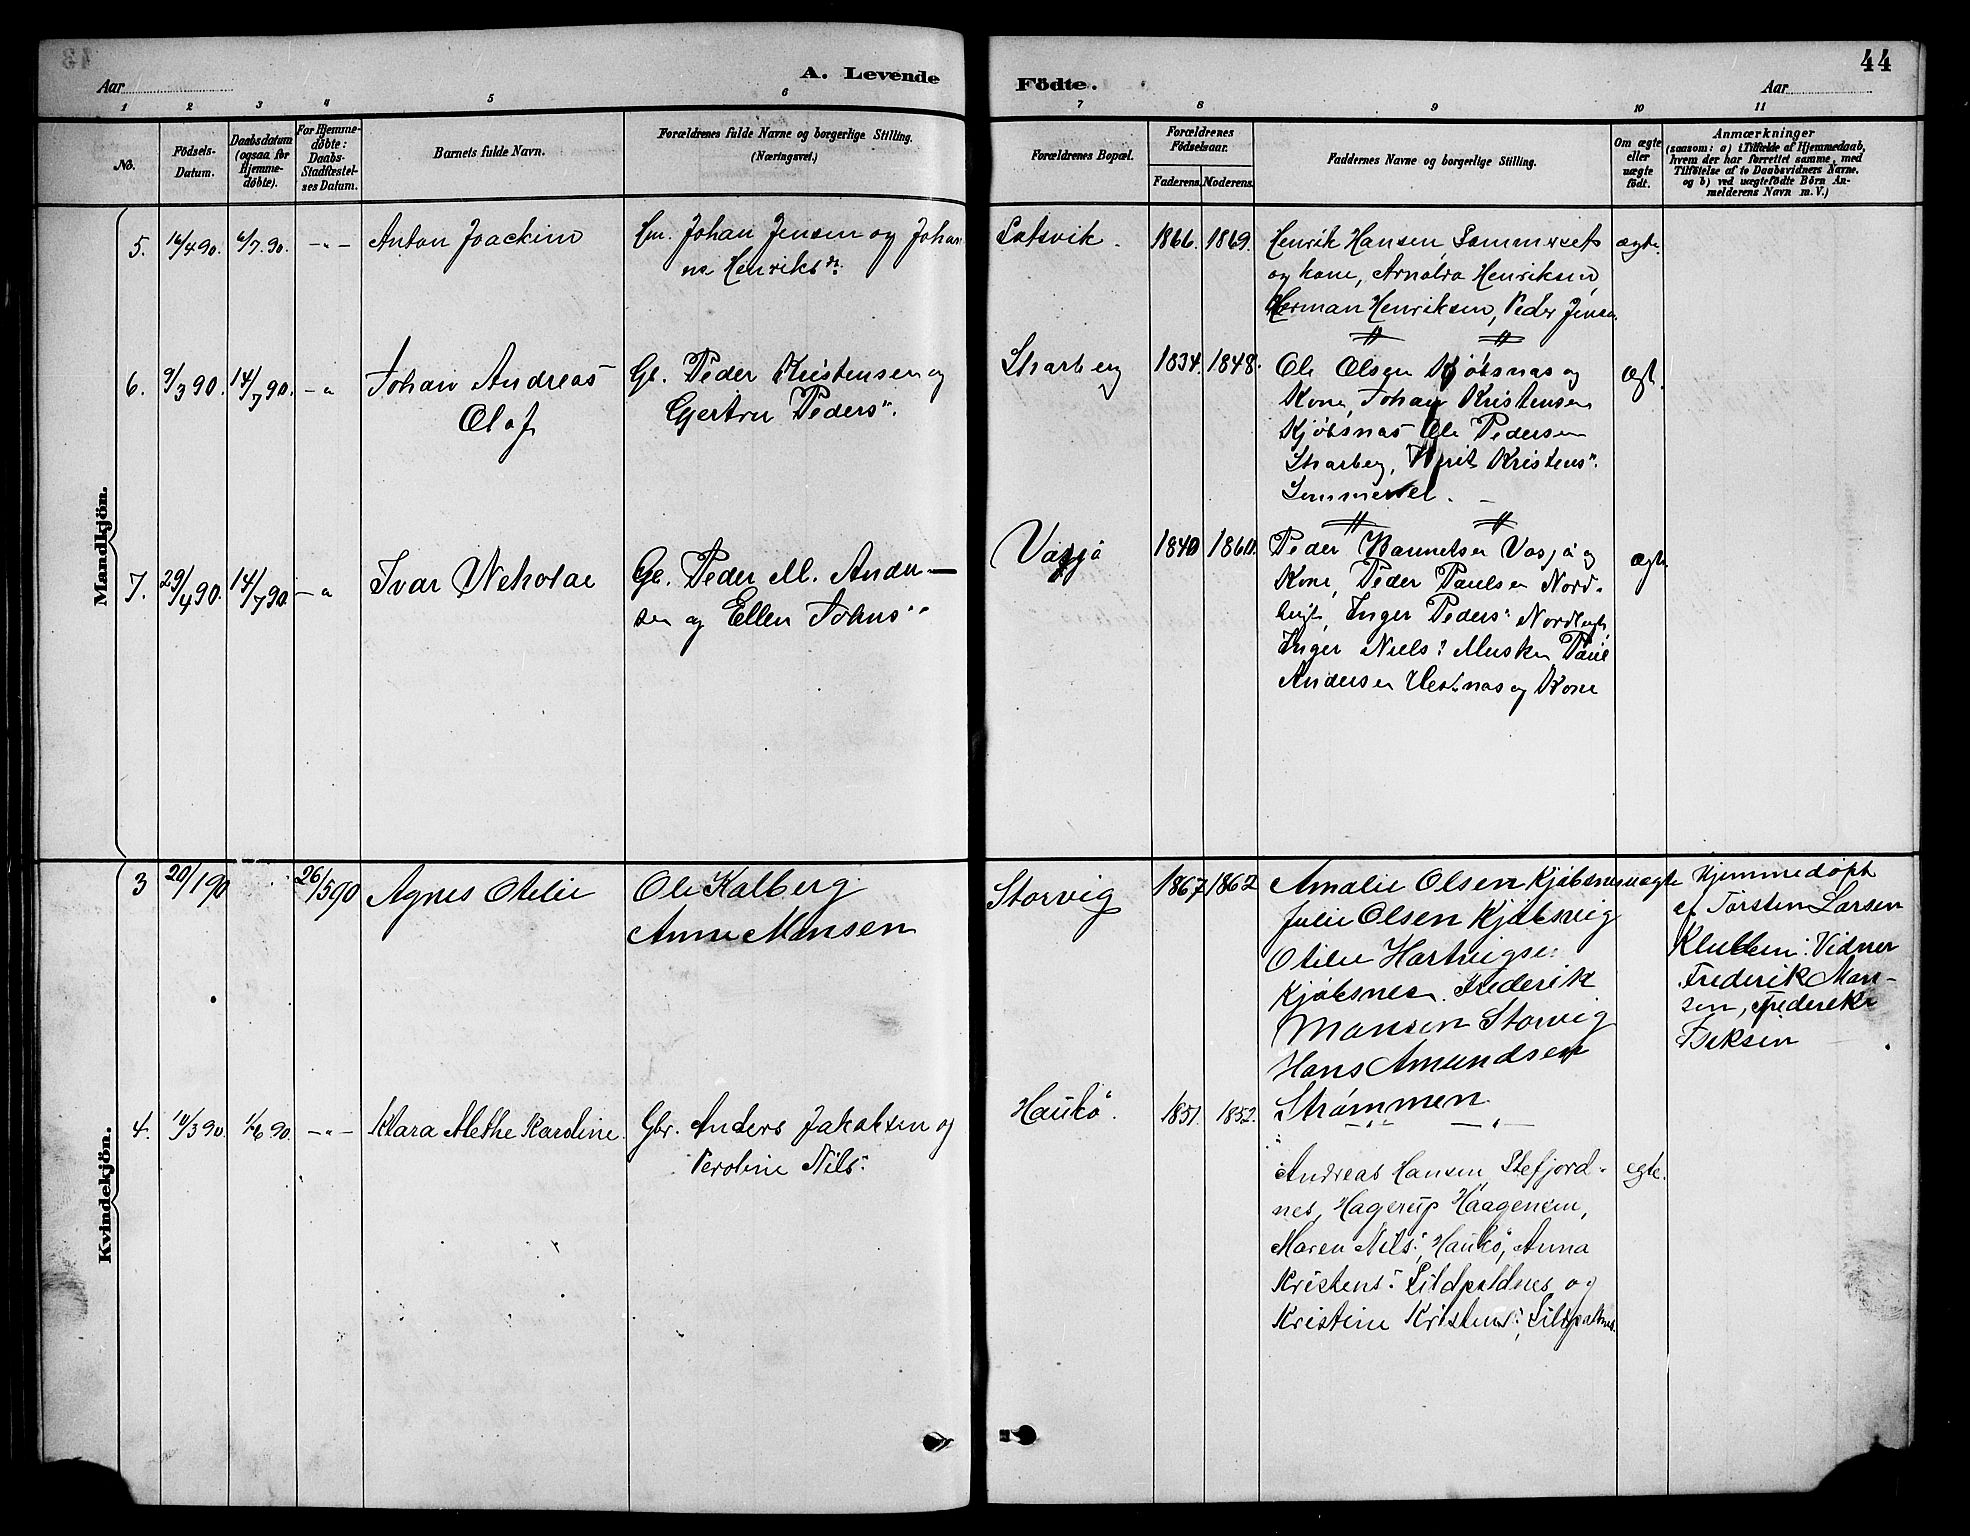 44
A. Levende
Födte.
Aar
Aar
1 2 3 4 5 6
7 8 9 10 11
No.
Födsels-
Datum.
Daabsdatum
(ogsaa for
Hjemme-
döbte).
For Hjemme-
döbte:
Daabs-
Stadfæstel-
ses Datum.
Barnets fulde Navn.
Forældrenes fulde Navne og borgerlige Stilling.
(Næringsvei.)
Forældrenes Bopæl.
Forældrenes
Födselsaar.
Faderens. Moderens.
Faddernes Navne og borgerlige Stilling.
Om ægte
eller
uægte
födt.
Anmærkninger
(saasom: a) i Tilfælde af Hjemmedaab,
hvem der har forrettet samme, med
Tilföielse af to Daabsvidners Navne.
og b) ved uægtefödte Börn An-
melderens Navn m. V.)
Mandkjön.
5. 16/4 90. 6/7. 90. -"- Anton Joachim
Hm. Johan Jensen og Johan
na Henriksdr.
1866. 1869.
Henrik Hansen, Sommerset
og kone, Arnolda Henriksen,
Herman Henriksen, Peder Jensen
ægte.
6. 9/3 90. 14/7 90. -"
Johan Andreas
Olaf
Gl. Peder Kristensen og
Gertru Peders".
Skarberg
1834. 1848.
Ole Olsen Kjøbsnas og
Kone, Johan Kristensen
Kjøbsnas Ole Pedersen
Skarberg, Kristens".
Sommersel.
ægt.
7. 29/4 90. 14/7 90 -"
Ivar Nekolai
Gl. Peder M. Ander-
sen og Ellen Johns"
1840 1860.
Peder og
Kone, Peder Paulsen Nord-
bugt, Inger Peders: Nordbugt,
Inger Niels: Musken Paul
Andersen Vestnas og Kone
ægte
Kvindekjön.
3 20/1 90 26/5 90 Agnes Otelie
Ole Kalberg
Anne Monsen
Storvig
1867 1862
Amalie Olsen Kjøbsnes
Julie Olsen Kjøbsvig
Otelie Hartvigsen
Kjøbsnes. Frederik
Monsen Storvig
Hans Amundsen
Strømmen
uægte
Hjemmedøpt
af Torsten Larsen
Klubben: Vidner
Frederik Mon-
sen, Frederikke
4. 10/3 90. 1/6 90. -"- Klara Alethe Karoline.
Gbr. Anders Jakobsen og
Peroline Nils:
Haukö.
1851. 1852.
Andreas Hansen Stefjord-
nes, Hagerup Haagensen,
Maren Nils:, Haukö, Anna
Kristens: Sildpoldnes og
Kristine Kristens:, Sildpolnes.
egte.